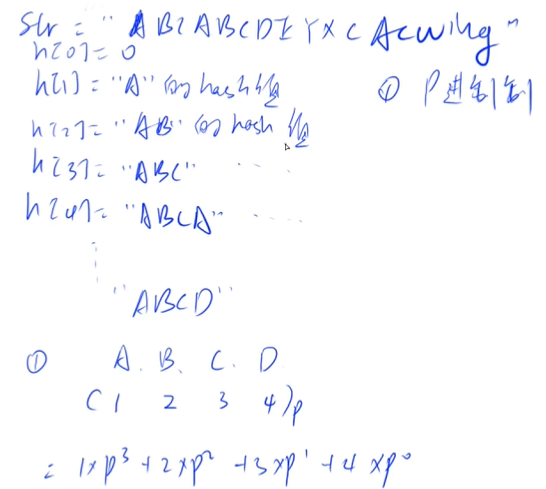 Str = "ABCABCDEYXCAcwing"
h[0] = 0
h[1] = "A" 的 hash 值
① P进制
h[2] = "AB" 的 hash 值
h[3] = "ABC" ....
h[4] = "ABCA" ....
"ABCD"
① A. B. C. D
(1 2 3 4)p
= 1×p³ + 2×p² + 3×p¹ + 4×p⁰